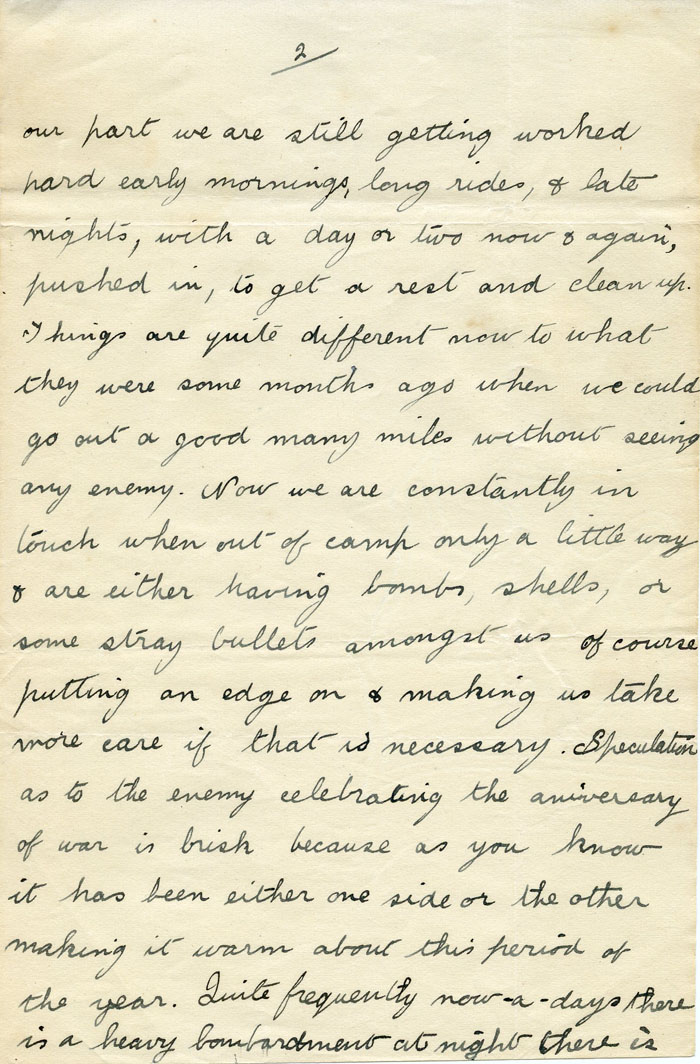 2
our part we are still getting worked
hard early mornings, long rides, & late
nights, with a day or two now & again,
pushed in, to get a rest and clean up.
Things are quite different now to what
they were some months ago when we could
go out a good many miles without seeing
any enemy. Now we are constantly in
touch when out of camp only a little way
& are either having bombs, shells, or
some stray bullets amongst us of course
putting an edge on & making us take
more care if that is necessary. Speculation
as to the enemy celebrating the aniversary
of war is brisk because as you know
it has been either one side or the other
making it warm about this period of
the year. Quite frequently now-a-days there
is a heavy bombardment at night there is